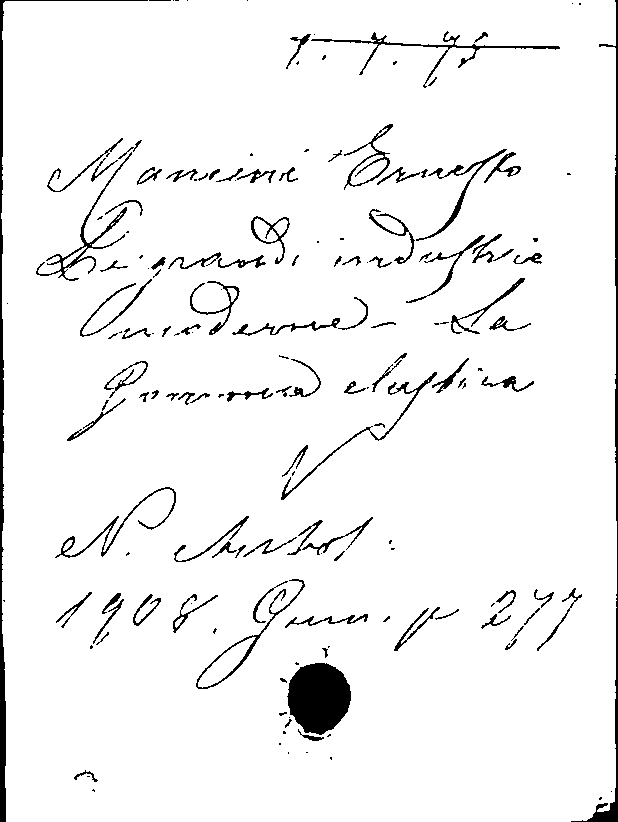 1. 7. 75
Mancini Ernesto
Le grandi industrie
moderne - La
Gomma elastica
N. Antol:
1908. Genn. p 277